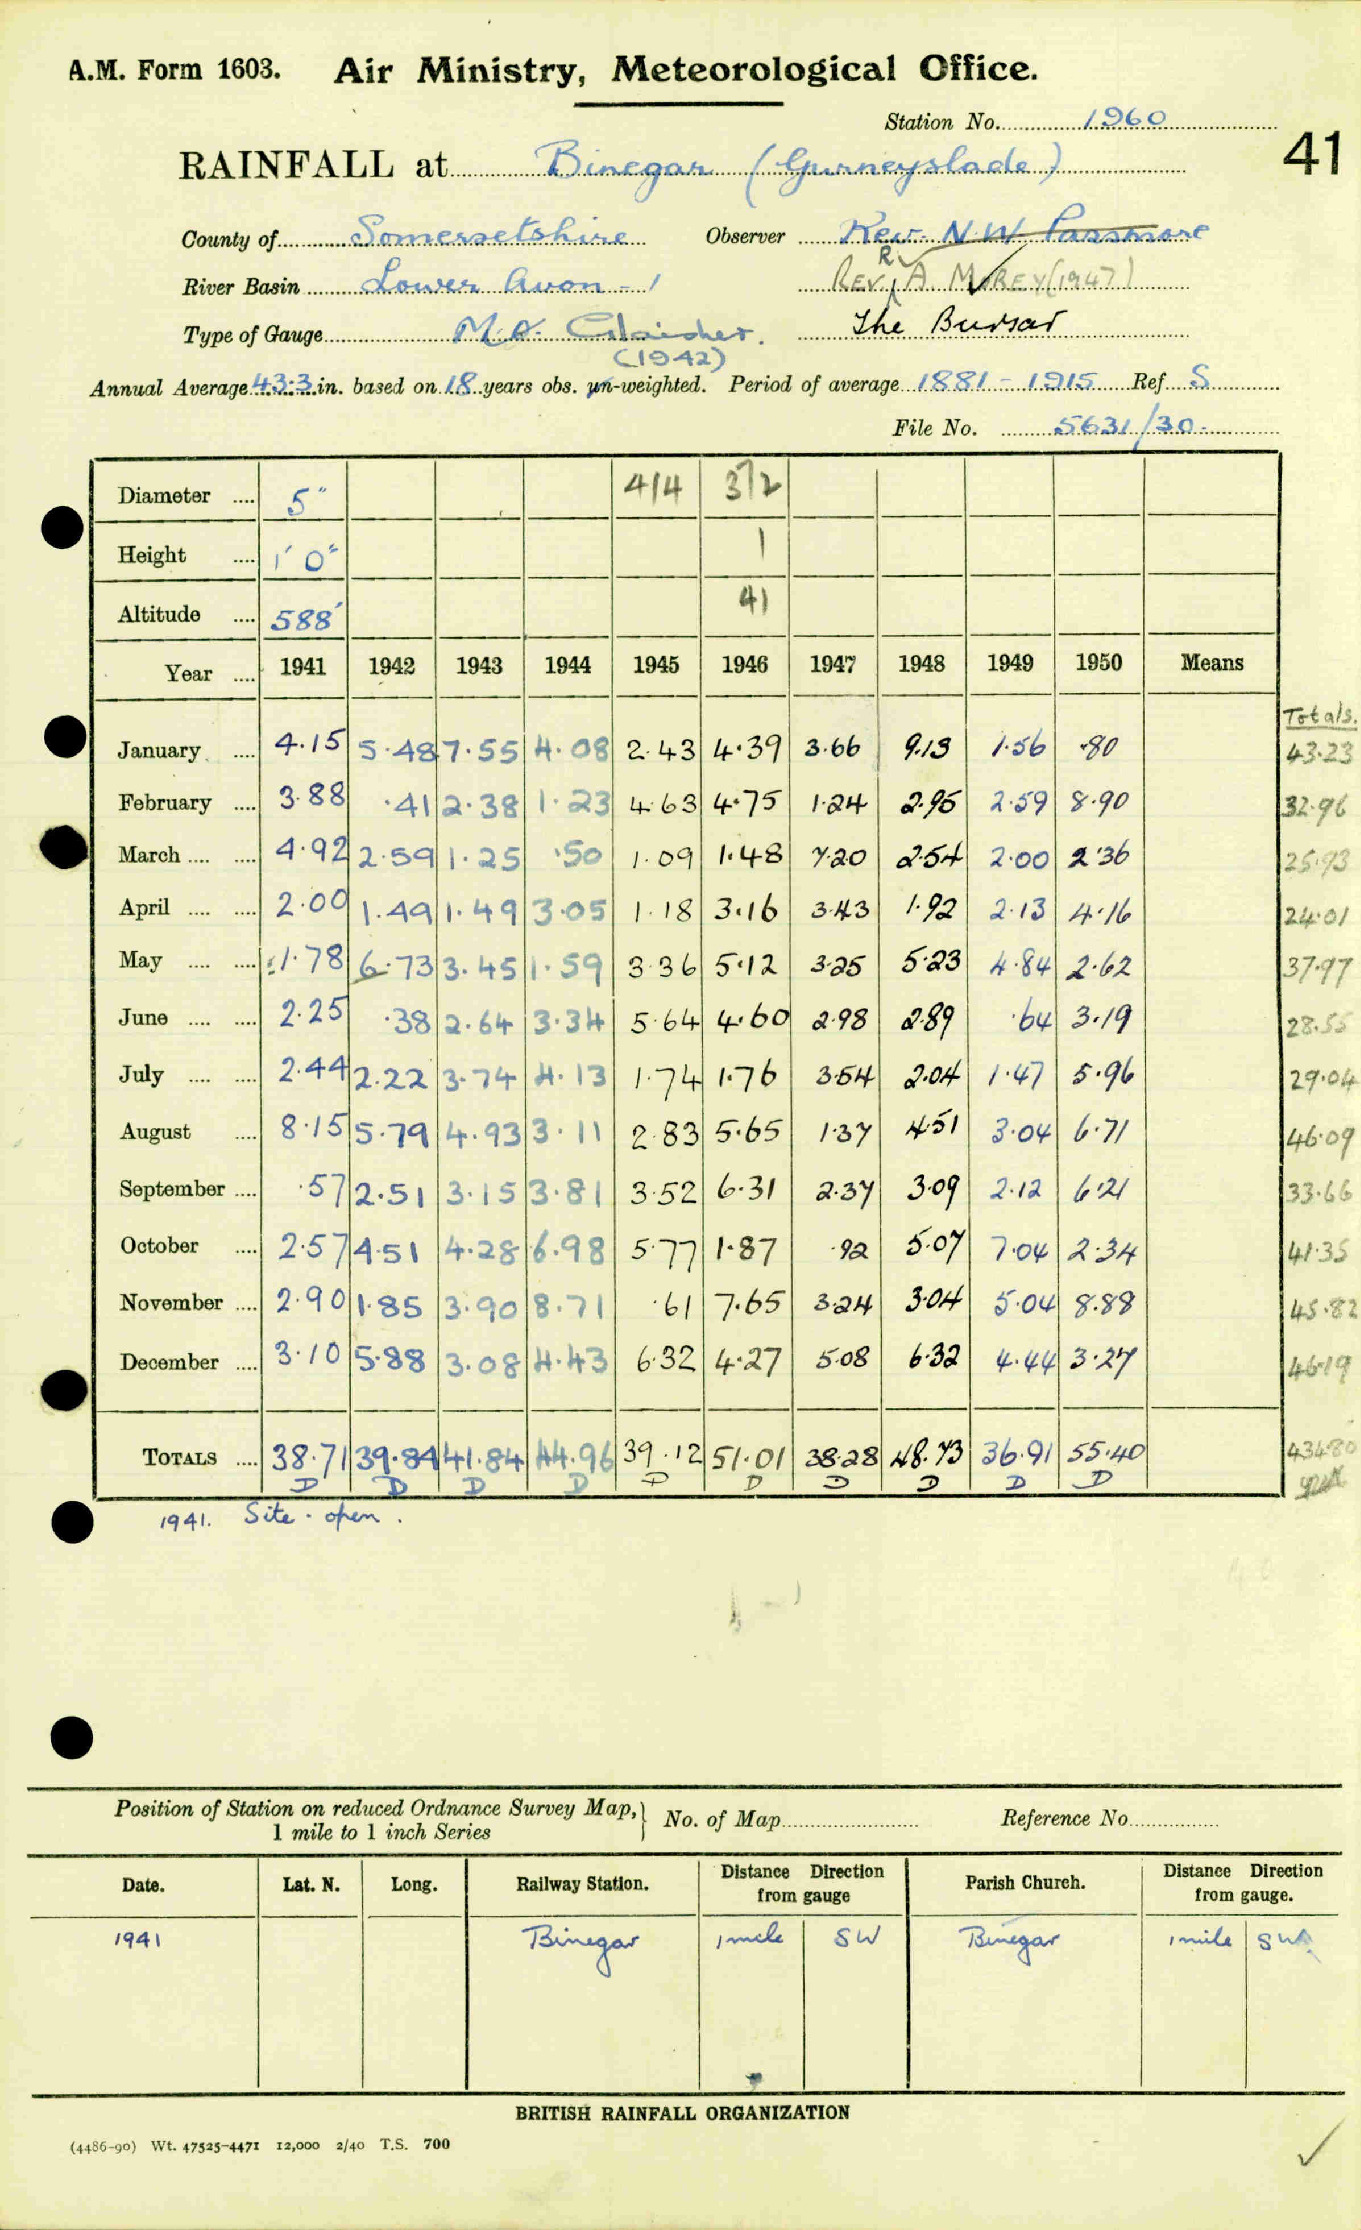 A.M. Form 1603. Air Ministry, Meteorological Office.
Station No. 1960
41
RAINFALL at Binegar (Gurneyslade)
County of Somersetshire Observer Rev. N. W. Passmore
River Basin Lower Avon - 1 Rev. R. A. MOREY (1947)
Type of Gauge M.O. Glaisher. The Bursar
(1942)
Annual Average 43.3 in. based on 18 years obs. un-weighted. Period of average 1881 - 1915 Ref. S
File No. 5631/30.
Diameter .... 5" 414 372
Height .... 1' 0" 1
Altitude .... 588' 41
Year .... 1941 1942 1943 1944 1945 1946 1947 1948 1949 1950 Means
Totals.
January .... 4.15 5.48 7.55 4.08 2.43 4.39 3.66 9.13 1.56 .80 43.23
February .... 3.88 .41 2.38 1.23 4.63 4.75 1.24 2.95 2.59 8.90 32.96
March .... .... 4.92 2.59 1.25 .50 1.09 1.48 7.20 2.54 2.00 2.36 25.93
April .... .... 2.00 1.49 1.49 3.05 1.18 3.16 3.43 1.92 2.13 4.16 24.01
May .... .... 1.78 6.73 3.45 1.59 3.36 5.12 3.25 5.23 4.84 2.62 37.97
June .... .... 2.25 .38 2.64 3.34 5.64 4.60 2.98 2.89 .64 3.19 28.55
July .... .... 2.44 2.22 3.74 4.13 1.74 1.76 3.54 2.04 1.47 5.96 29.04
August .... 8.15 5.79 4.93 3.11 2.83 5.65 1.37 4.51 3.04 6.71 46.09
September .... .57 2.51 3.15 3.81 3.52 6.31 2.37 3.09 2.12 6.21 33.66
October .... 2.57 4.51 4.28 6.98 5.77 1.87 .92 5.07 7.04 2.34 41.35
November .... 2.90 1.85 3.90 8.71 .61 7.65 3.24 3.04 5.04 8.88 45.82
December .... 3.10 5.88 3.08 4.43 6.32 4.27 5.08 6.32 4.44 3.27 46.19
TOTALS .... 38.71 39.84 41.84 44.96 39.12 51.01 38.28 48.73 36.91 55.40 434.80
D D D D D D D D D D
1941. Site - open.
Position of Station on reduced Ordnance Survey Map, } No. of Map Reference No.
1 mile to 1 inch Series
Date. Lat. N. Long. Railway Station. Distance Direction from gauge Parish Church. Distance Direction from gauge.
1941 Binegar 1 mile SW Binegar 1 mile SW
BRITISH RAINFALL ORGANIZATION
(4486-90) Wt. 47525-4471 12,000 2/40 T.S. 700